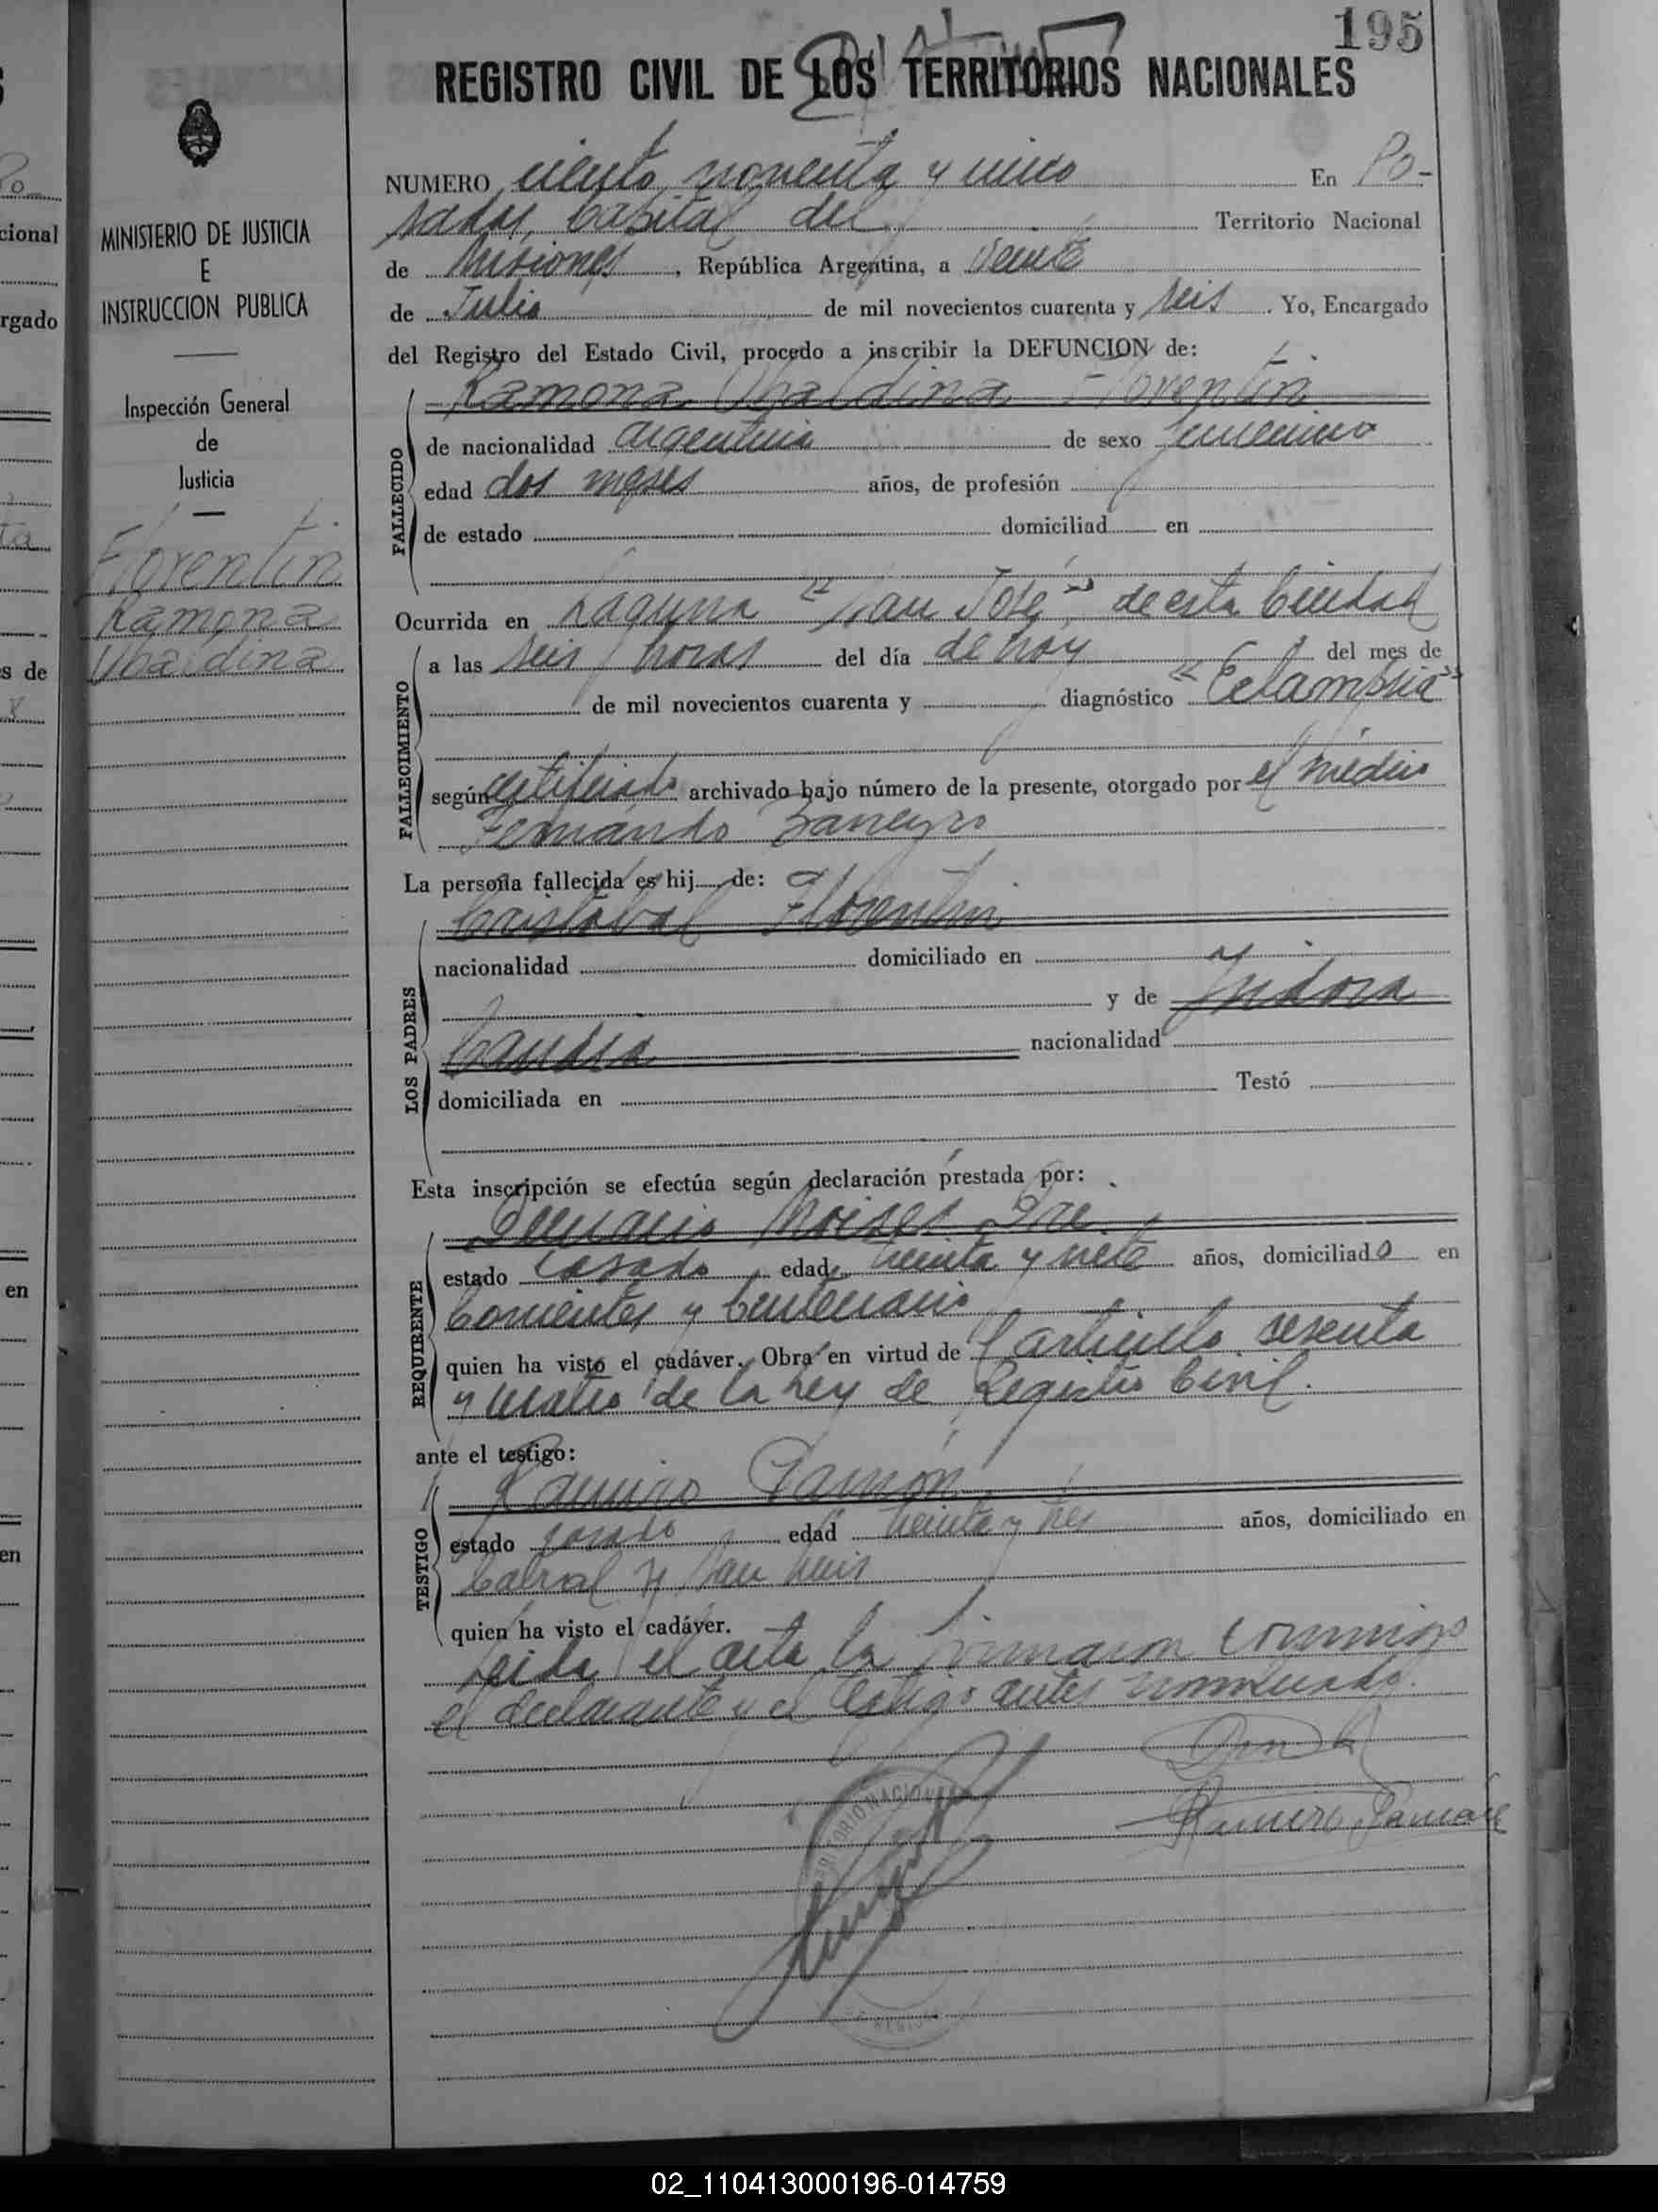 195
REGISTRO CIVIL DE LOS TERRITORIOS NACIONALES
NUMERO ciento noventa y cinco En Po-
sadas, Capital del Territorio Nacional
de Misiones, República Argentina, a veinte
de Julio de mil novecientos cuarenta y seis. Yo, Encargado
del Registro del Estado Civil, procedo a inscribir la DEFUNCION de:
Ramona Ubaldina Florentin
FALLECIDO
de nacionalidad argentina de sexo femenino
edad dos meses años, de profesión
de estado domiciliad en
Ocurrida en Laguna "San José" de esta Ciudad
FALLECIMIENTO
a las seis horas del día de hoy del mes de
de mil novecientos cuarenta y diagnóstico "Eclampsia"
según certificado archivado bajo número de la presente, otorgado por el médico
Fernando
La persona fallecida es hij de:
LOS PADRES
Cristobal Florentin
nacionalidad domiciliado en
y de
nacionalidad
domiciliada en Testó
Esta inscripción se efectúa según declaración prestada por:
REQUIRENTE
Moises
estado casado edad treinta y siete años, domiciliado en
Corrientes y Centenario
quien ha visto el cadáver. Obra en virtud de l artículo sesenta
y cuatro de la Ley de Registro Civil.
ante el testigo:
TESTIGO
Ramiro
estado casado edad treinta y tres años, domiciliado en
Cabral y San Luis
quien ha visto el cadáver.
Leida el acta la firmaron conmigo
el declarante y el testigo antes nombrado.
MINISTERIO DE JUSTICIA
E
INSTRUCCION PUBLICA
Inspección General
de
Justicia
Florentin
Ramona
Ubaldina
02_110413000196-014759